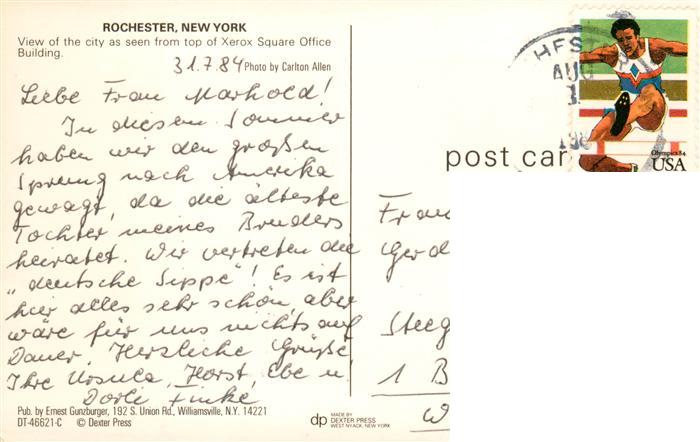 ROCHESTER, NEW YORK
View of the city as seen from top of Xerox Square Office
Building.
31.7.84 Photo by Carlton Allen
Liebe Frau Marhold!
In diesem Sommer
haben wir den großen
Sprung nach Amerika
gewagt, da die älteste
Tochter meines Bruders
heiratet. Wir vertreten die
"deutsche Sippe"! Es ist
hier alles sehr schön aber
wäre für uns nichts auf
Dauer. Herzliche Grüße
Ihre Ursula, Horst, Ebe u.
Dorle Finke
Pub. by Ernest Gunzburger, 192 S. Union Rd., Williamsville, N.Y. 14221
DT-46621-C © Dexter Press
dp MADE BY
DEXTER PRESS
WEST NYACK, NEW YORK
HFS
AUG
198
Olympics 84
USA
post car
Frau
Gerd
Steeg
1 B
W